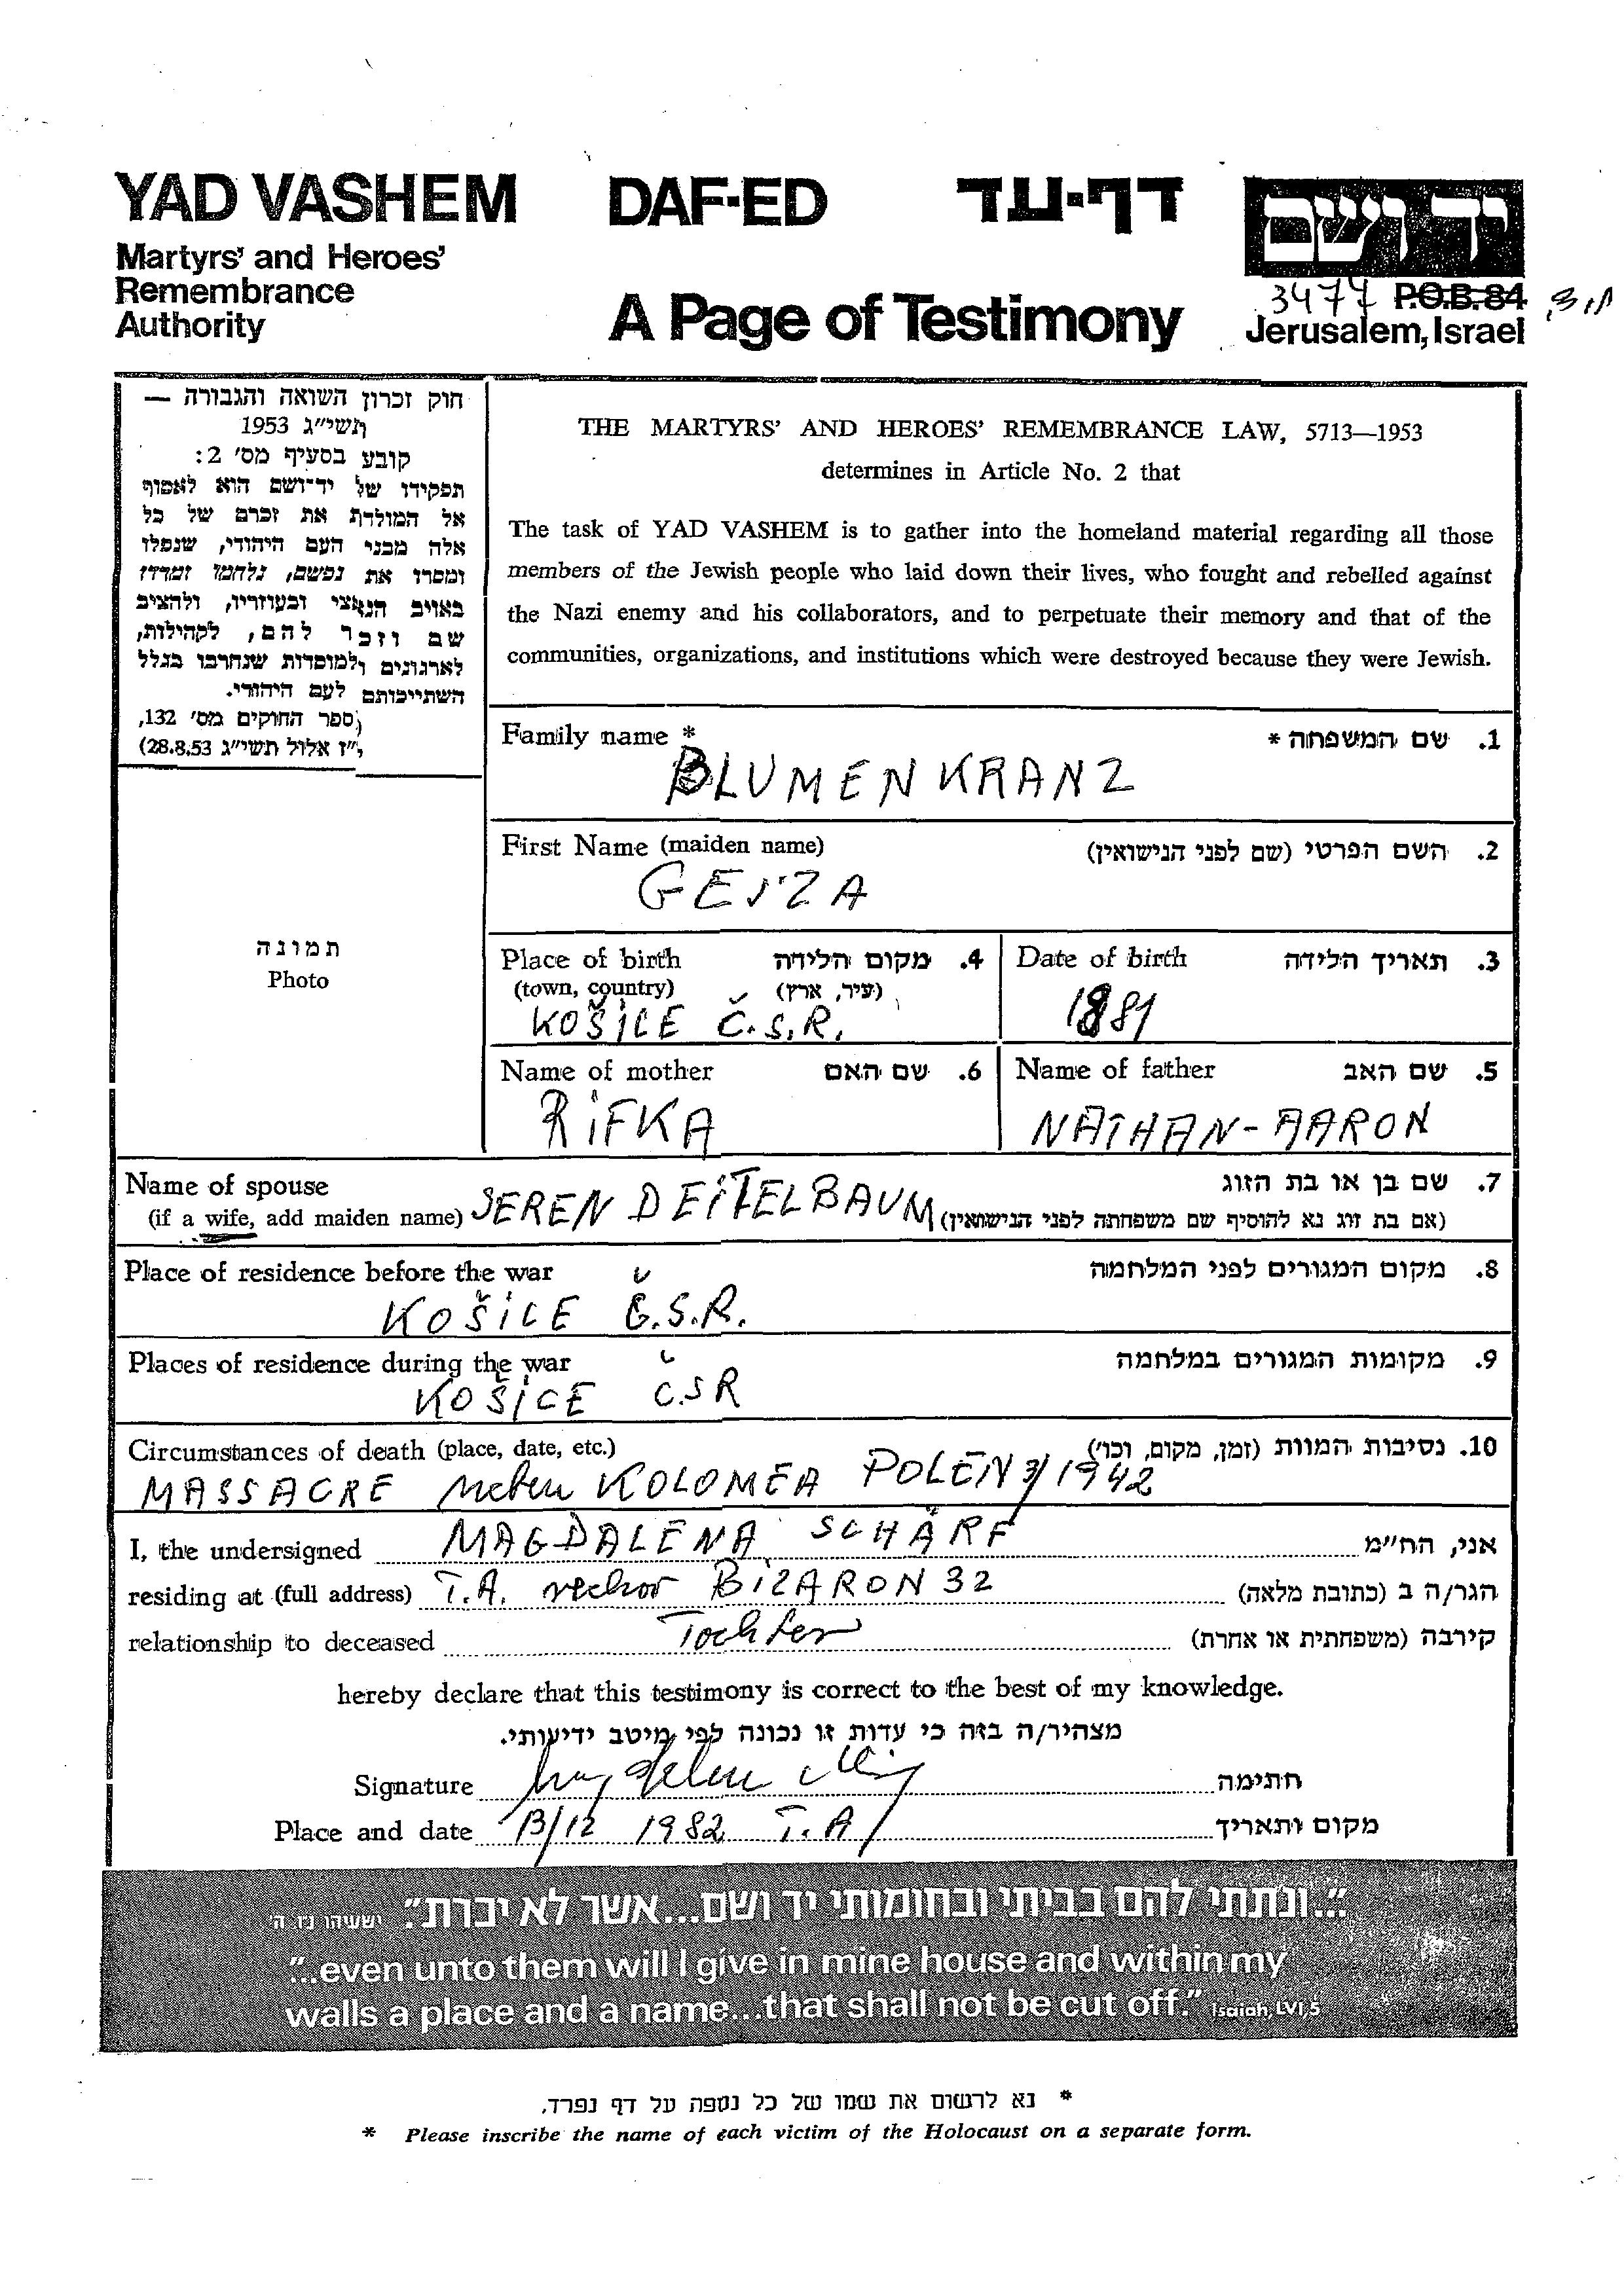 YAD VASHEM DAF-ED דף-עד יד ושם
Martyrs' and Heroes'
Remembrance
Authority
A Page of Testimony
3477 P.O.B. 84
Jerusalem, Israel
חוק זכרון השואה והגבורה —
תשי״ג 1953
קובע בסעיף מס׳ 2:
תפקידו של יד־ושם הוא לאסוף
אל המולדת את זכרם של כל
אלה מבני העם היהודי, שנפלו
ומסרו את נפשם, נלחמו ומרדו
באויב הנאצי ובעוזריו, ולהציב
שם וזכר להם, לקהילות,
לארגונים ולמוסדות שנחרבו בגלל
השתייכותם לעם היהודי.
(ספר החוקים מס׳ 132,
י״ז אלול תשי״ג 28.8.53)
THE MARTYRS' AND HEROES' REMEMBRANCE LAW, 5713—1953
determines in Article No. 2 that
The task of YAD VASHEM is to gather into the homeland material regarding all those
members of the Jewish people who laid down their lives, who fought and rebelled against
the Nazi enemy and his collaborators, and to perpetuate their memory and that of the
communities, organizations, and institutions which were destroyed because they were Jewish.
תמונה
Photo
Family name * 1. שם המשפחה *
BLUMENKRANZ
First Name (maiden name) 2. השם הפרטי (שם לפני הנישואין)
GEJZA
Place of birth 4. מקום הלידה
(town, country) (עיר, ארץ)
KOŠICE Č.S.R.
Date of birth 3. תאריך הלידה
1881
Name of mother 6. שם האם
RIFKA
Name of father 5. שם האב
NATHAN-AARON
Name of spouse 7. שם בן או בת הזוג
(if a wife, add maiden name) SEREN DEITELBAUM (אם בת זוג נא להוסיף שם משפחתה לפני הנישואין)
Place of residence before the war 8. מקום המגורים לפני המלחמה
KOŠICE Č.S.R.
Places of residence during the war 9. מקומות המגורים במלחמה
KOŠICE ČSR
Circumstances of death (place, date, etc.) 10. נסיבות המוות (זמן, מקום, וכו׳)
MASSACRE neben KOLOMEA POLEN 3/1942
I, the undersigned MAGDALENA SCHÄRF אני, הח״מ
residing at (full address) T.A. rechov BIZARON 32 הגר/ה ב (כתובת מלאה)
relationship to deceased Tochter קירבה (משפחתית או אחרת)
hereby declare that this testimony is correct to the best of my knowledge.
מצהיר/ה בזה כי עדות זו נכונה לפי מיטב ידיעותי.
Signature חתימה
Place and date 13/12 1982 T.A מקום ותאריך
"...ונתתי להם בביתי ובחומותי יד ושם...אשר לא יכרת". ישעיהו נו, ה׳
"...even unto them will I give in mine house and within my
walls a place and a name...that shall not be cut off." Isaiah, LVI, 5
* נא לרשום את שמו של כל נספה על דף נפרד.
* Please inscribe the name of each victim of the Holocaust on a separate form.